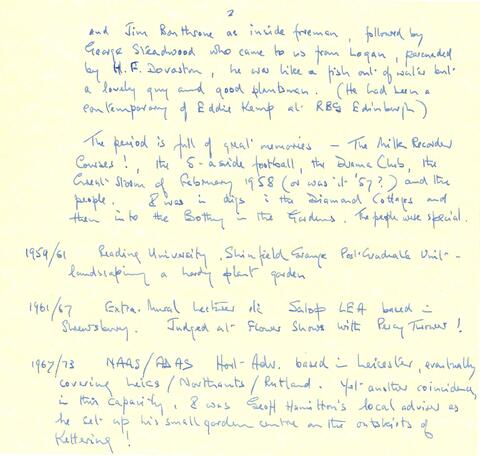 2
and Jim Banthrone as inside foreman, followed by
George Steadwood who came to us from Logan, persuaded
by H.F. Dovaston, he was like a fish out of water but
a lovely guy and good plantsman. (He had been a
contemporary of Eddie Kemp at RBG Edinburgh)
The period is full of great memories — The Milk Recorder
Courses!, the 5-a-side football, the Drama Club, the
Great Storm of February 1958 (or was it '57?) and the
people. I was in digs in the Diamond Cottages and
then into the Bothy in the Gardens. The people were special.
1959/61 Reading University, Shinfield Grange Post-Graduate Unit -
landscaping a hardy plant garden
1961/67 Extra. Mural Lecturer Salop LEA based in
Shrewsbury. Judged at Flower Shows with Percy Thrower!
1967/73 NAAS/ADAS Hort-Adv. based in Leicester, eventually
covering Leics/Northants/Rutland. Yet another coincidence
in this capacity, I was Geoff Hamilton's local adviser as
he set up his small garden centre on the outskirts of
Kettering!